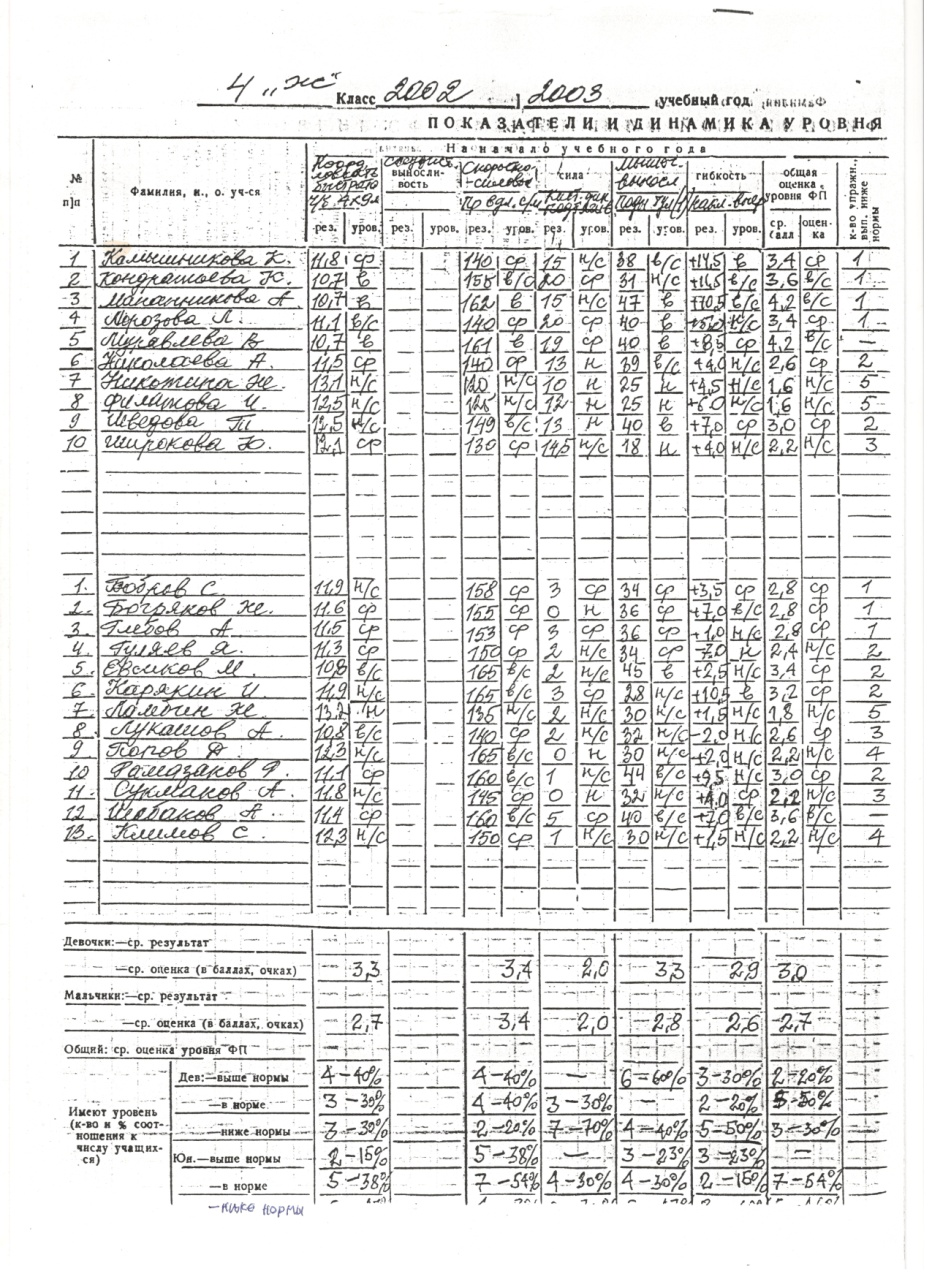 4 "ж" Класс 2002 | 2003 учебный год
ПОКАЗАТЕЛИ И ДИНАМИКА УРОВНЯ
На начало учебного года
№ п]п Фамилия, и., о. уч-ся выносливость сила гибкость общая оценка уровня ФП к-во упражн. вып. ниже нормы
рез. уров. рез. уров. рез. уров. рез. уров. рез. уров. рез. уров. ср. балл оценка
1 Камышникова К. 11,8 ср 140 ср 15 н/с 38 в/с +14,5 в 3,4 ср 1
2 Кондратьева К. 10,7 в 155 в/с 20 ср 31 н/с +14,5 в/с 3,6 в/с 1
3 Мананникова А 10,7 в 162 в 15 н/с 47 в +10,5 в/с 4,2 в/с 1
4 Морозова Л. 11,1 в/с 140 ср 20 ср 40 в н/с 3,4 ср 1
5 Муравлева В 10,7 в 161 в 19 ср 40 в +8,5 ср 4,2 в/с —
6 Николаева А. 11,5 ср 140 ср 13 н 39 в/с +4,0 н/с 2,6 ср 2
7 Никотина Ж. 13,1 н/с 120 н/с 10 н 25 н +4,5 н/с 1,6 н/с 5
8 Филатова И. 12,5 н/с 125 н/с 12 н 25 н +6,0 н/с 1,6 н/с 5
9 Шведова Т 12,5 н/с 149 в/с 13 н 40 в +7,0 ср 3,0 ср 2
10 Широкова Ю. 12,1 ср 130 ср 14,5 н/с 18 н +4,0 н/с 2,2 н/с 3
1. Бобров С 11,9 н/с 158 ср 3 ср 34 ср +3,5 ср 2,8 ср 1
2. Богряков Ж. 11.6 ср 155 ср 0 н 36 ср +7,0 в/с 2,8 ср 1
3. Глебов А 11,5 ср 153 ср 3 ср 36 ср +1,0 н/с 2,8 ср 1
4. Гуляев Я. 11,3 ср 150 ср 2 н/с 34 ср -7,0 н 2,4 н/с 2
5. Евсиков М. 10,8 в/с 165 в/с 2 н/с 45 в +2,5 н/с 3,4 ср 2
6. Карякин И. 11,9 н/с 165 в/с 3 ср 28 н/с +10,5 в 3,2 ср 2
7. Ламбин Ж 13,2 н 135 н/с 2 н/с 30 н/с +1,5 н/с 1,8 н/с 5
8 Лукашов А. 10,8 в/с 140 ср 2 н/с 32 н/с -2,0 н/с 2,6 ср 3
9 Попов Д 12,3 н/с 165 в/с 0 н 30 н/с +2,0 н/с 2,2 н/с 4
10 Рамазаков Р. 11,1 ср 160 в/с 1 н/с 44 в/с +9,5 н/с 3,0 ср 2
11. Сукманов А. 11,8 н/с 145 ср 0 н 32 н/с +4,0 ср 2,2 н/с 3
12 Щербаков А 11,4 ср 160 в/с 5 ср 40 в/с +7,0 в/с 3,6 в/с —
13. Климов С. 12,3 н/с 150 ср 1 н/с 30 н/с +1,5 н/с 2,2 н/с 4
Девочки:—ср. результат
—ср. оценка (в баллах, очках) 3,3 3,4 2,0 3,3 2,9 3,0
Мальчики:—ср. результат
—ср. оценка (в баллах, очках) 2,7 3,4 2,0 2,8 2,6 2,7
Общий: ср. оценка уровня ФП
Имеют уровень (к-во и % соотношения к числу учащихся)
Дев:—выше нормы 4—40% 4—40% — 6—60% 3—30% 2—20%
—в норме 3—30% 4—40% 3—30% 2—20% 5—50%
—ниже нормы 3—30% 2—20% 7—70% 4—40% 5—50% 3—30%
Юн.—выше нормы 2—15% 5—38% — 3—23% 3—23% —
—в норме 5—38% 7—54% 4—30% 4—30% 2—15% 7—54%
—ниже нормы